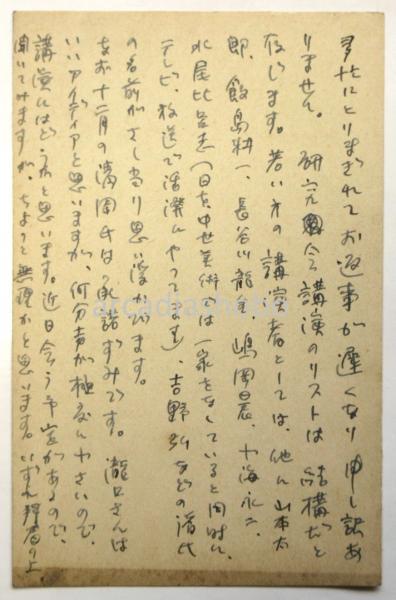 多忙にとりまぎれてお返事が遅くなり申し訳あ
りません。研究会講演のリストは結構だと
存じます。若い方の講演者としては、他に山本太
郎、飯島耕一、長谷川龍生、嶋岡晨、小海永二、
水尾比呂志(日本中世美術では一家をなしていると同時に、
テレビ、放送で活溌にやっています)、吉野弘などの諸氏
の名前がさし当り思い浮かびます。
なお十二月の濱岡氏は承諾ずみです。瀧口さんは
いいアイディアと思いますが、何分声が極度に小さいので、
講演にはどうかと思います。近日会う予定があるので、
聞いてみますが、ちょっと無理かと思います。いずれ拝眉の上、
arcadiashobo